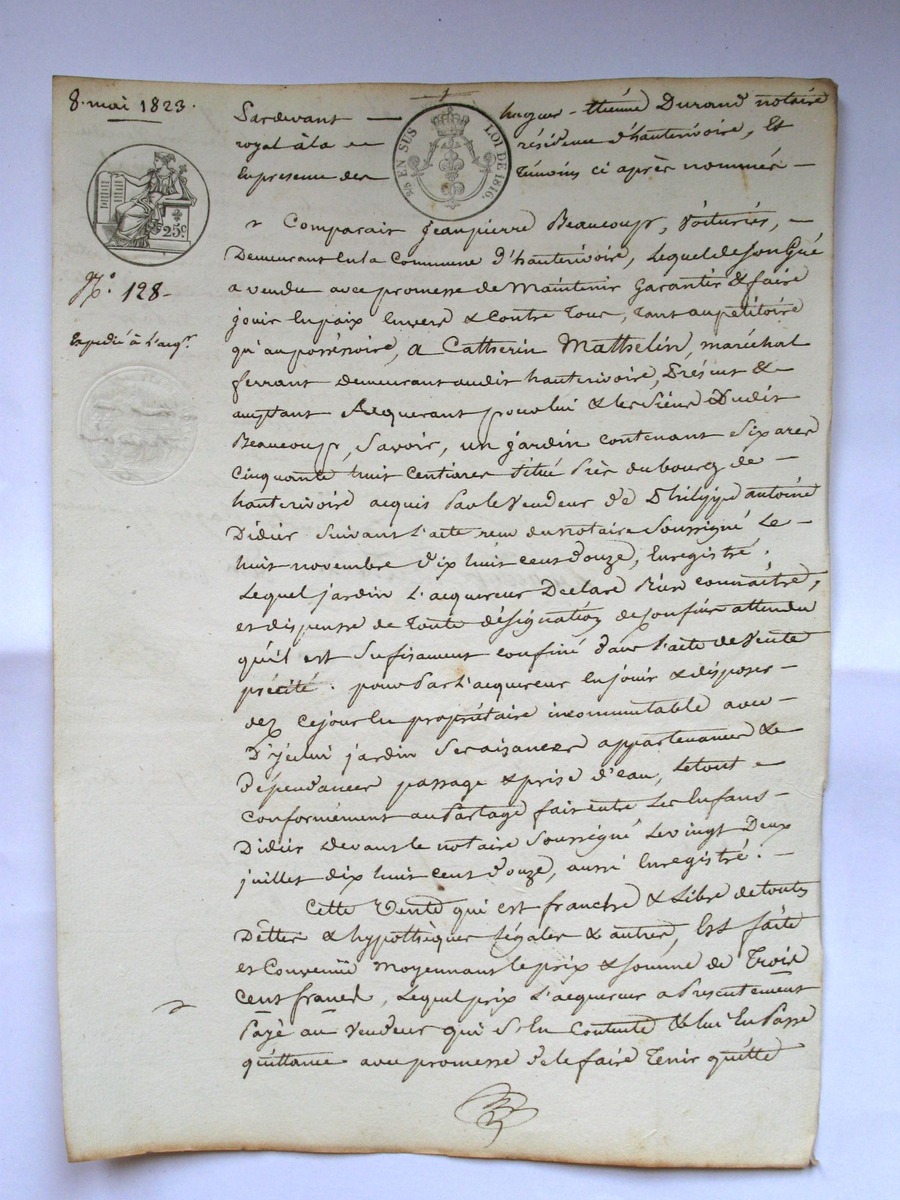 8. mai 1823.
Pardevant — hugues-étienne Durand notaire
royal à la résidence d'hauterivoire, Et
En presence des Témoins ci après nommés —
25 EN SUS LOI DE 1816.
25c.
N.o 128.
Expédié à l'acqr.
Comparait Jean pierre Beaucoup, Voiturier, —
Demeurant en la Commune d'hauterivoire, Lequel de son gré
a vendu avec promesse de Maintenir Garantir & faire
jouir En paix Envers & Contre Tous, tant au pétitoire
qu'au possessoire, a Catherin Mathelin, maréchal
ferrant demeurant audit hauterivoire, Présent &
acceptant Acquerant pour lui & les siens Dudit
Beaucoup, Savoir, un jardin contenant Six ares
Cinquante huit Centiares situé Près du bourg de —
hauterivoire acquis Par le Vendeur de Philippe antoine
Didier suivant l'acte reçu du notaire Soussigné Le —
huit novembre Dix huit cent Douze, Enregistré.
Lequel jardin L'acquereur Declare Bien connaître,
et dispense de Toute désignation de confins attendu
qu'il est Sufisament confiné dans l'acte de Vente
précité. pour Par L'acquereur En jouir & disposer —
dez ce jour En propriétaire incommutable avec —
D'icelui jardin Ses aisances appartenances &
Dépendances passage & prise d'eau, Le tout
Conformément au Partage fait entre Les Enfans —
Didier Devant le notaire Soussigné Le vingt Deux
juillet dix huit cent Douze, aussi Enregistré. —
Cette Vente qui est franche & Libre de toutes
Dettes & hypothèques Légales & autres, Est faite
et Convenue Moyennant le prix & somme de Trois
Cent francs, Lequel prix L'acquereur a Presentement
Payé au Vendeur qui s'en Contente & lui En Passe
quittance avec promesse de le faire Tenir quitte